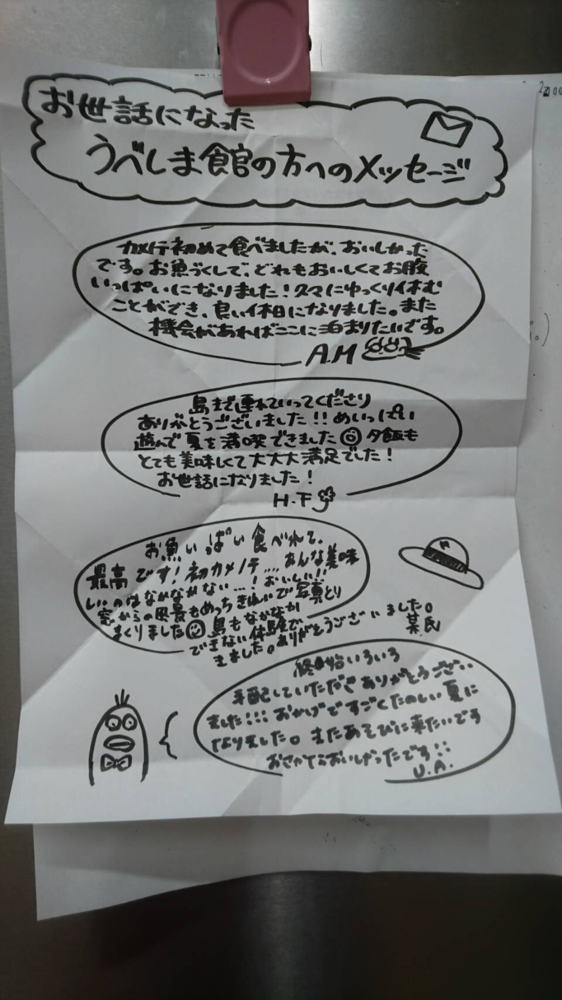 お世話になった
うべしま食官の方へのメッセージ
カメノテ初めて食べましたが、おいしかった
です。お魚づくしで、どれもおいしくてお腹
いっぱいになりました！久々にゆっくり休む
ことができ、良い休日になりました。また
機会があればここに泊まりたいです。
A.M
島まで連れていってくださり
ありがとうございました！！めいっぱい
遊んで夏を満喫できました 夕飯も
とても美味しくて大大大満足でした！
お世話になりました！
H.F
お魚いっぱい食べれて、
最高です！初カメノテ....あんな美味
しいのはなかなかない...！おいしい!!
窓からの風景もめっちゃきれいで写真とり
まくりました 島もなかなか
できない体験で
きました。ありがとうございました。
某氏
終始いろいろ
手配していただきありがとうござい
ました!!! おかげですごくたのしい夏に
なりました。またあそびに来たいです
おさかなおいしかったです!!
U.A.